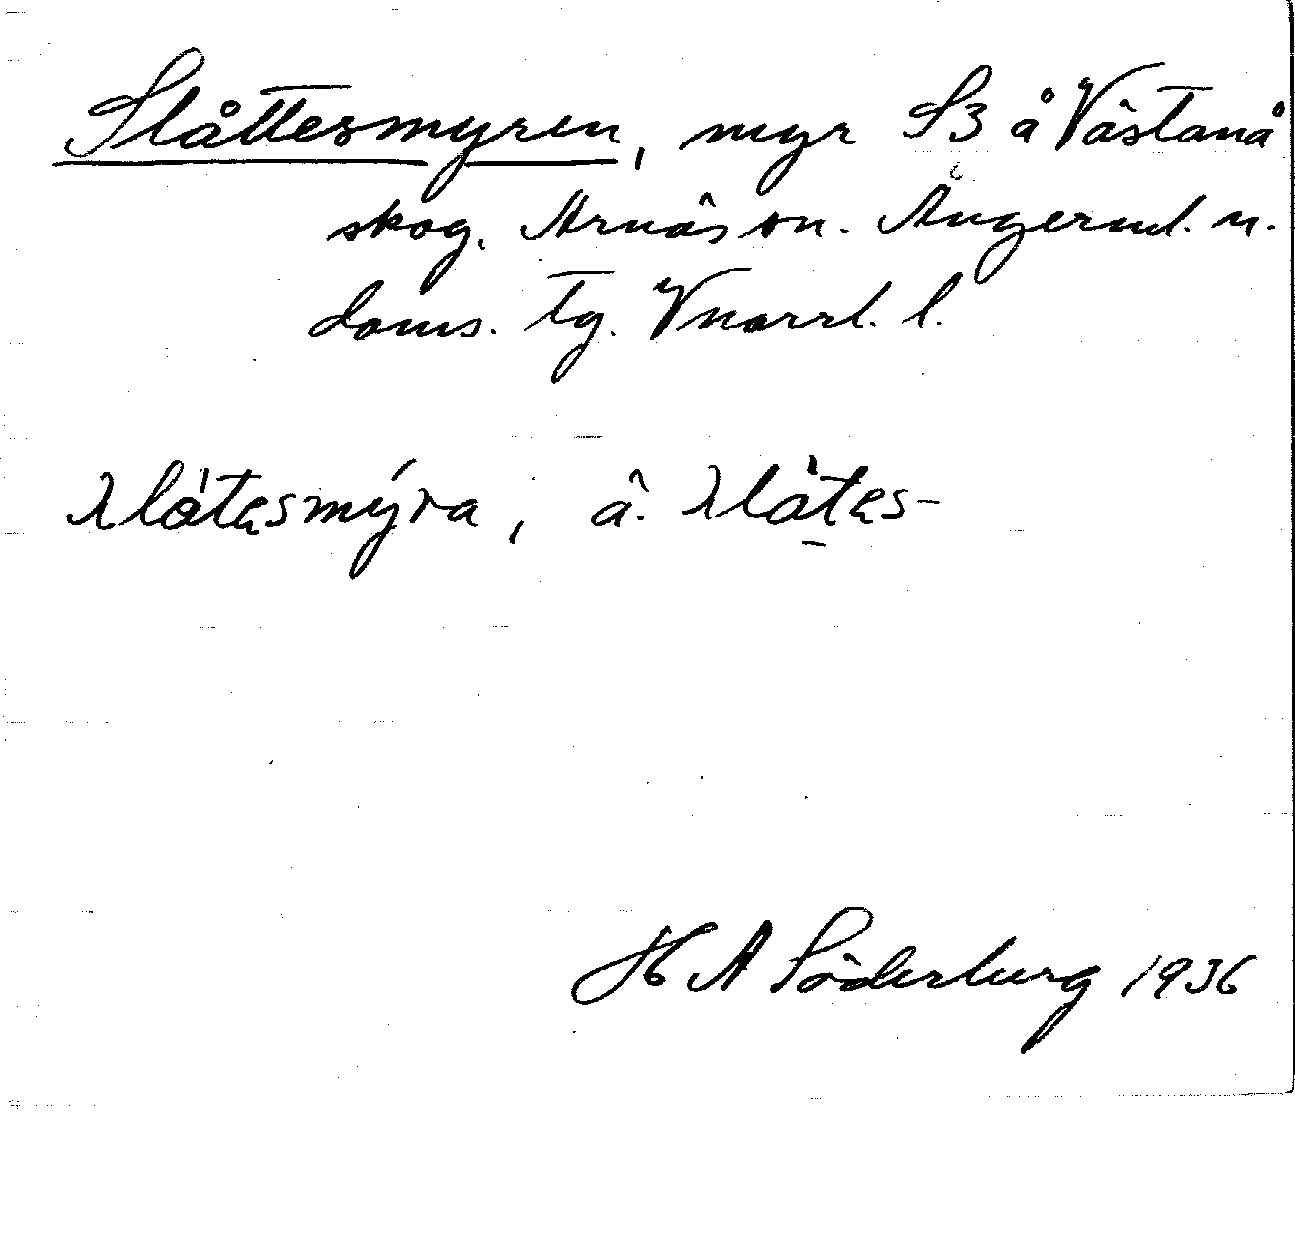 Slåttesmyren, myr S3 å Västanå
skog. Arnäs sn. Ångerml. n.
doms. tg. Vnorrl. l.
slåtesmýra, â. slåtes-
H A Söderberg 1936